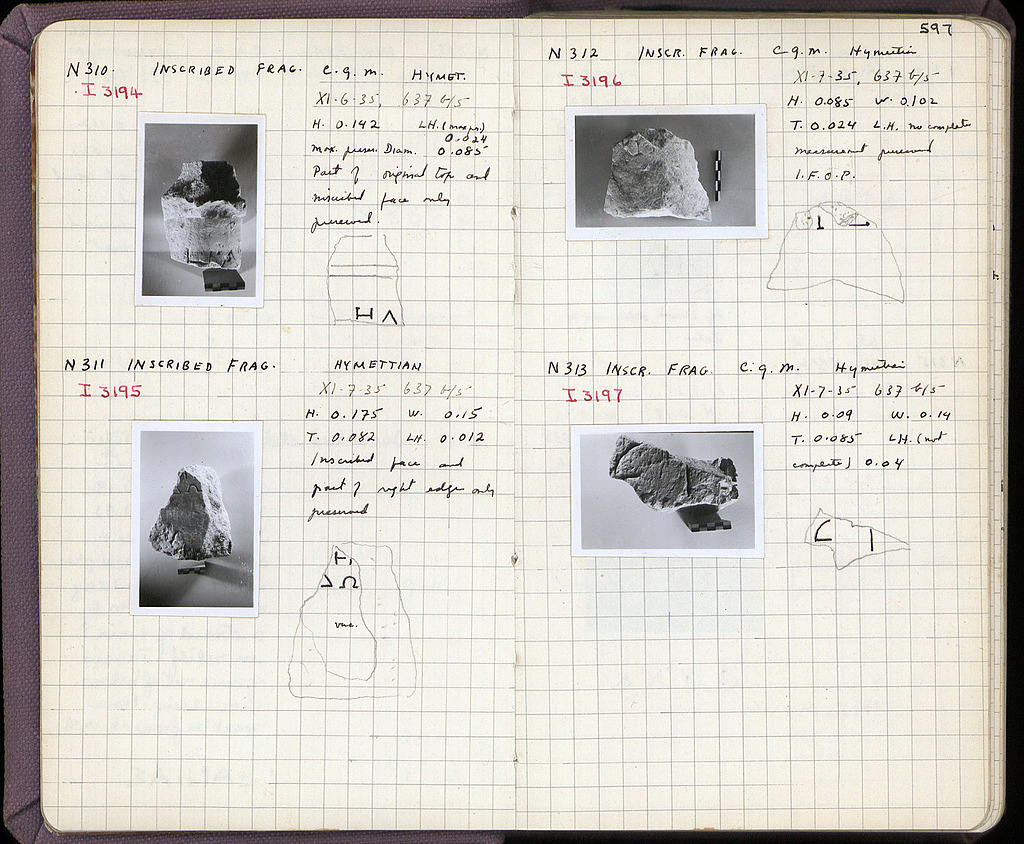 597
N 310. INSCRIBED FRAG. C.g.m. HYMET.
I 3194
XI-6-35, 637 b/5
H. 0.142 LH. (max pr.)
0.024
max. preser. Diam. 0.085
Part of original top and
inscribed face only
preserved.
Η Λ
N 311 INSCRIBED FRAG. HYMETTIAN
I 3195
XI-7-35 637 b/5
H. 0.175 W. 0.15
T. 0.082 LH. 0.012
Inscribed face and
part of right edge only
preserved
Ω
vac.
N 312 INSCR. FRAG. C.g.m. Hymettian
I 3196
XI-7-35, 637 b/5
H. 0.085 W. 0.102
T. 0.024 L.H. no complete
measurement preserved
I.F.O.P.
N 313 INSCR. FRAG. C.g.m. Hymettian
I 3197
XI-7-35 637 b/5
H. 0.09 W. 0.14
T. 0.085 LH. (not
complete) 0.04